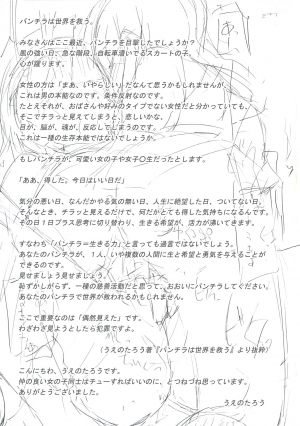 パンチラは世界を救う。
みなさんはここ最近、パンチラを目撃したでしょうか?
風の強い日、急な階段、自転車漕いでるスカートの子。
心が躍ります。
女性の方は「まあ、いやらしい」だなんて思うかもしれませんが、
これは男の本能なのです。条件反射なのです。
たとえそれが、おばさんや好みのタイプでない女性だと分かっていても、
そこでチラっと見えてしまうと、悲しいかな、
目が、脳が、魂が、反応してしまうのです。
これは一種の生存本能ではないでしょうか。
もしパンチラが、可愛い女の子や女子〇生だったとします。
「ああ、得した。今日はいい日だ」
気分の悪い日、なんだかやる気の無い日、人生に絶望した日、ついてない日。
そんなとき、チラッと見えるだけで、何だかとても得した気持ちになるんです。
その日1日プラス思考に切り替わり、生きる希望が、活力が沸いてきます。
すなわち「パンチラ=生きる力」と言っても過言ではないでしょう。
あなたのパンチラが、1人、いや複数の人間に生と希望と勇気を与えることが
できるのです。
見せましょう見せましょう。
恥ずかしがらず、一種の慈善活動だと思って、おおいにパンチラしてください。
あなたのパンチラで世界が救われるかもしれません。
ここで重要なのは「偶然見えた」です。
わざわざ見ようとしたら犯罪ですよ。
(うえのたろう著『パンチラは世界を救う』より抜粋)
こんにちわ、うえのたろうです。
仲の良い女の子同士はチューすればいいのに、とつねづね思っています。
ありがとうございました。
うえのたろう